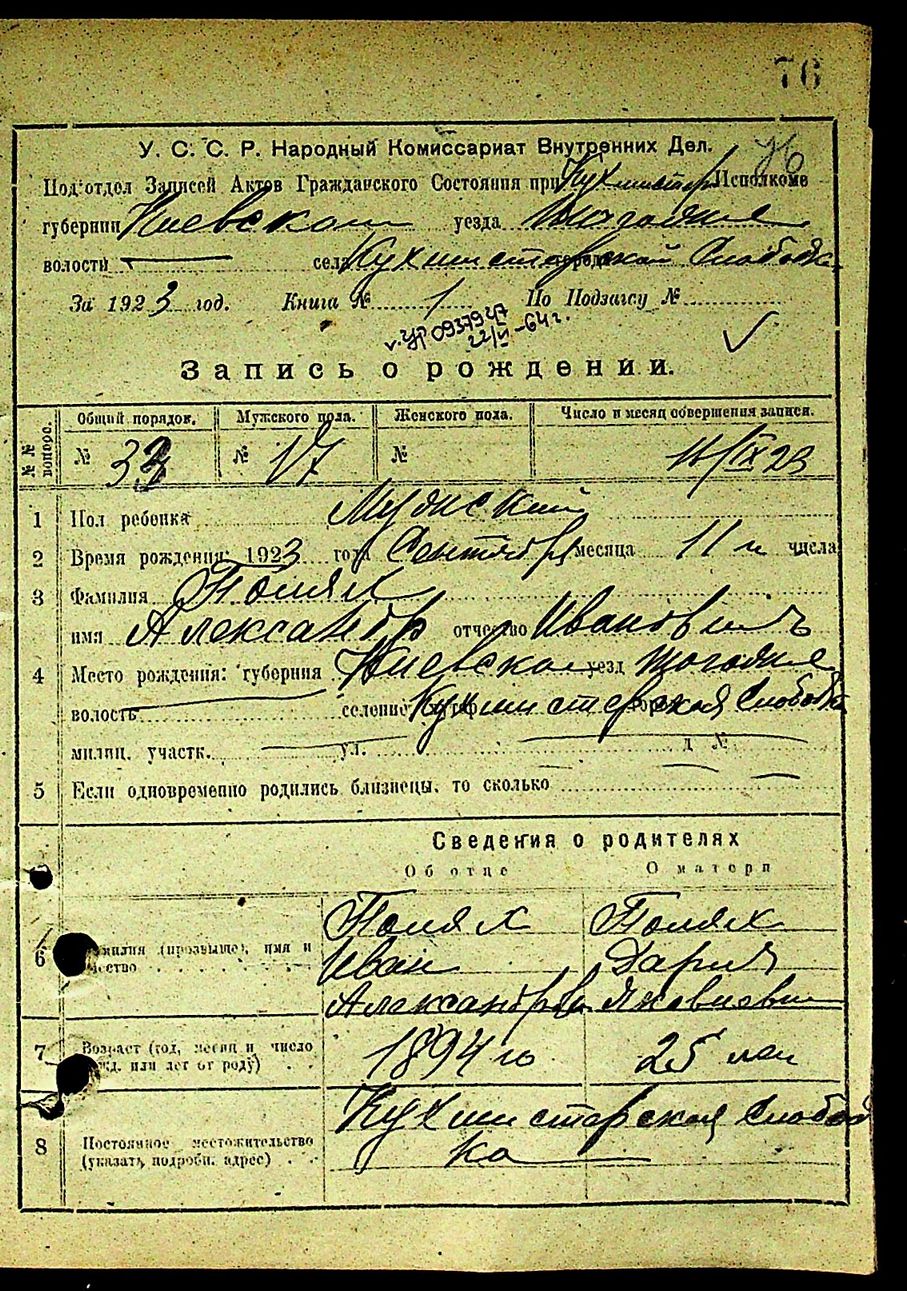 76
У. С. С. Р. Народный Комиссариат Внутренних Дел.
76
Под'отдел Записей Актов Гражданского Состояния при Кухмистер Исполкоме
губернии Киевской уезда
волости — села Кухмистерской Слободки
За 1923 год. Книга № 1 По Подзагсу №
094 0937947
22/VI - 64 г.
Запись о рождении.
№№ вопрос. Общий порядок. Мужского пола. Женского пола. Число и месяц совершения записи.
№ 33 № 17 № /IX 23
1 Пол ребенка Мужский
2 Время рождения: 1923 года Сентября месяца 11 го числа
3 Фамилия Поляк
имя Александр отчество Иванович
4 Место рождения: губерния Киевская уезд
волость — селение Кухмистерская Слободка
милиц. участк. — ул. — д №
5 Если одновременно родились близнецы, то сколько —
Сведения о родителях
Об отце О матери
6 Фамилия (прозвище), имя и отчество
Поляк Поляк
Иван Дария
Александров Яковлевн
7 Возраст (год, месяц и число рожд. или лет от роду)
1894 го 25 лет
8 Постоянное местожительство (указать подробн. адрес)
Кухмистерская Слобод
ка